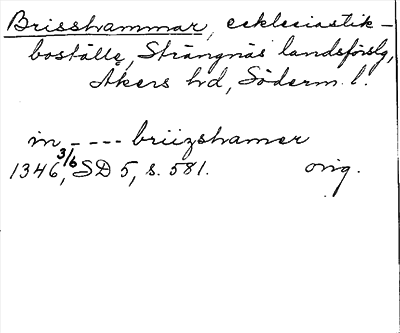 Brisshammar, ecklesiastik-
boställe, Strängnäs landsförslg,
Åkers hd, Söderm. l.
in - --- briizshamer
1346 3/6, SD 5, s. 581. orig.